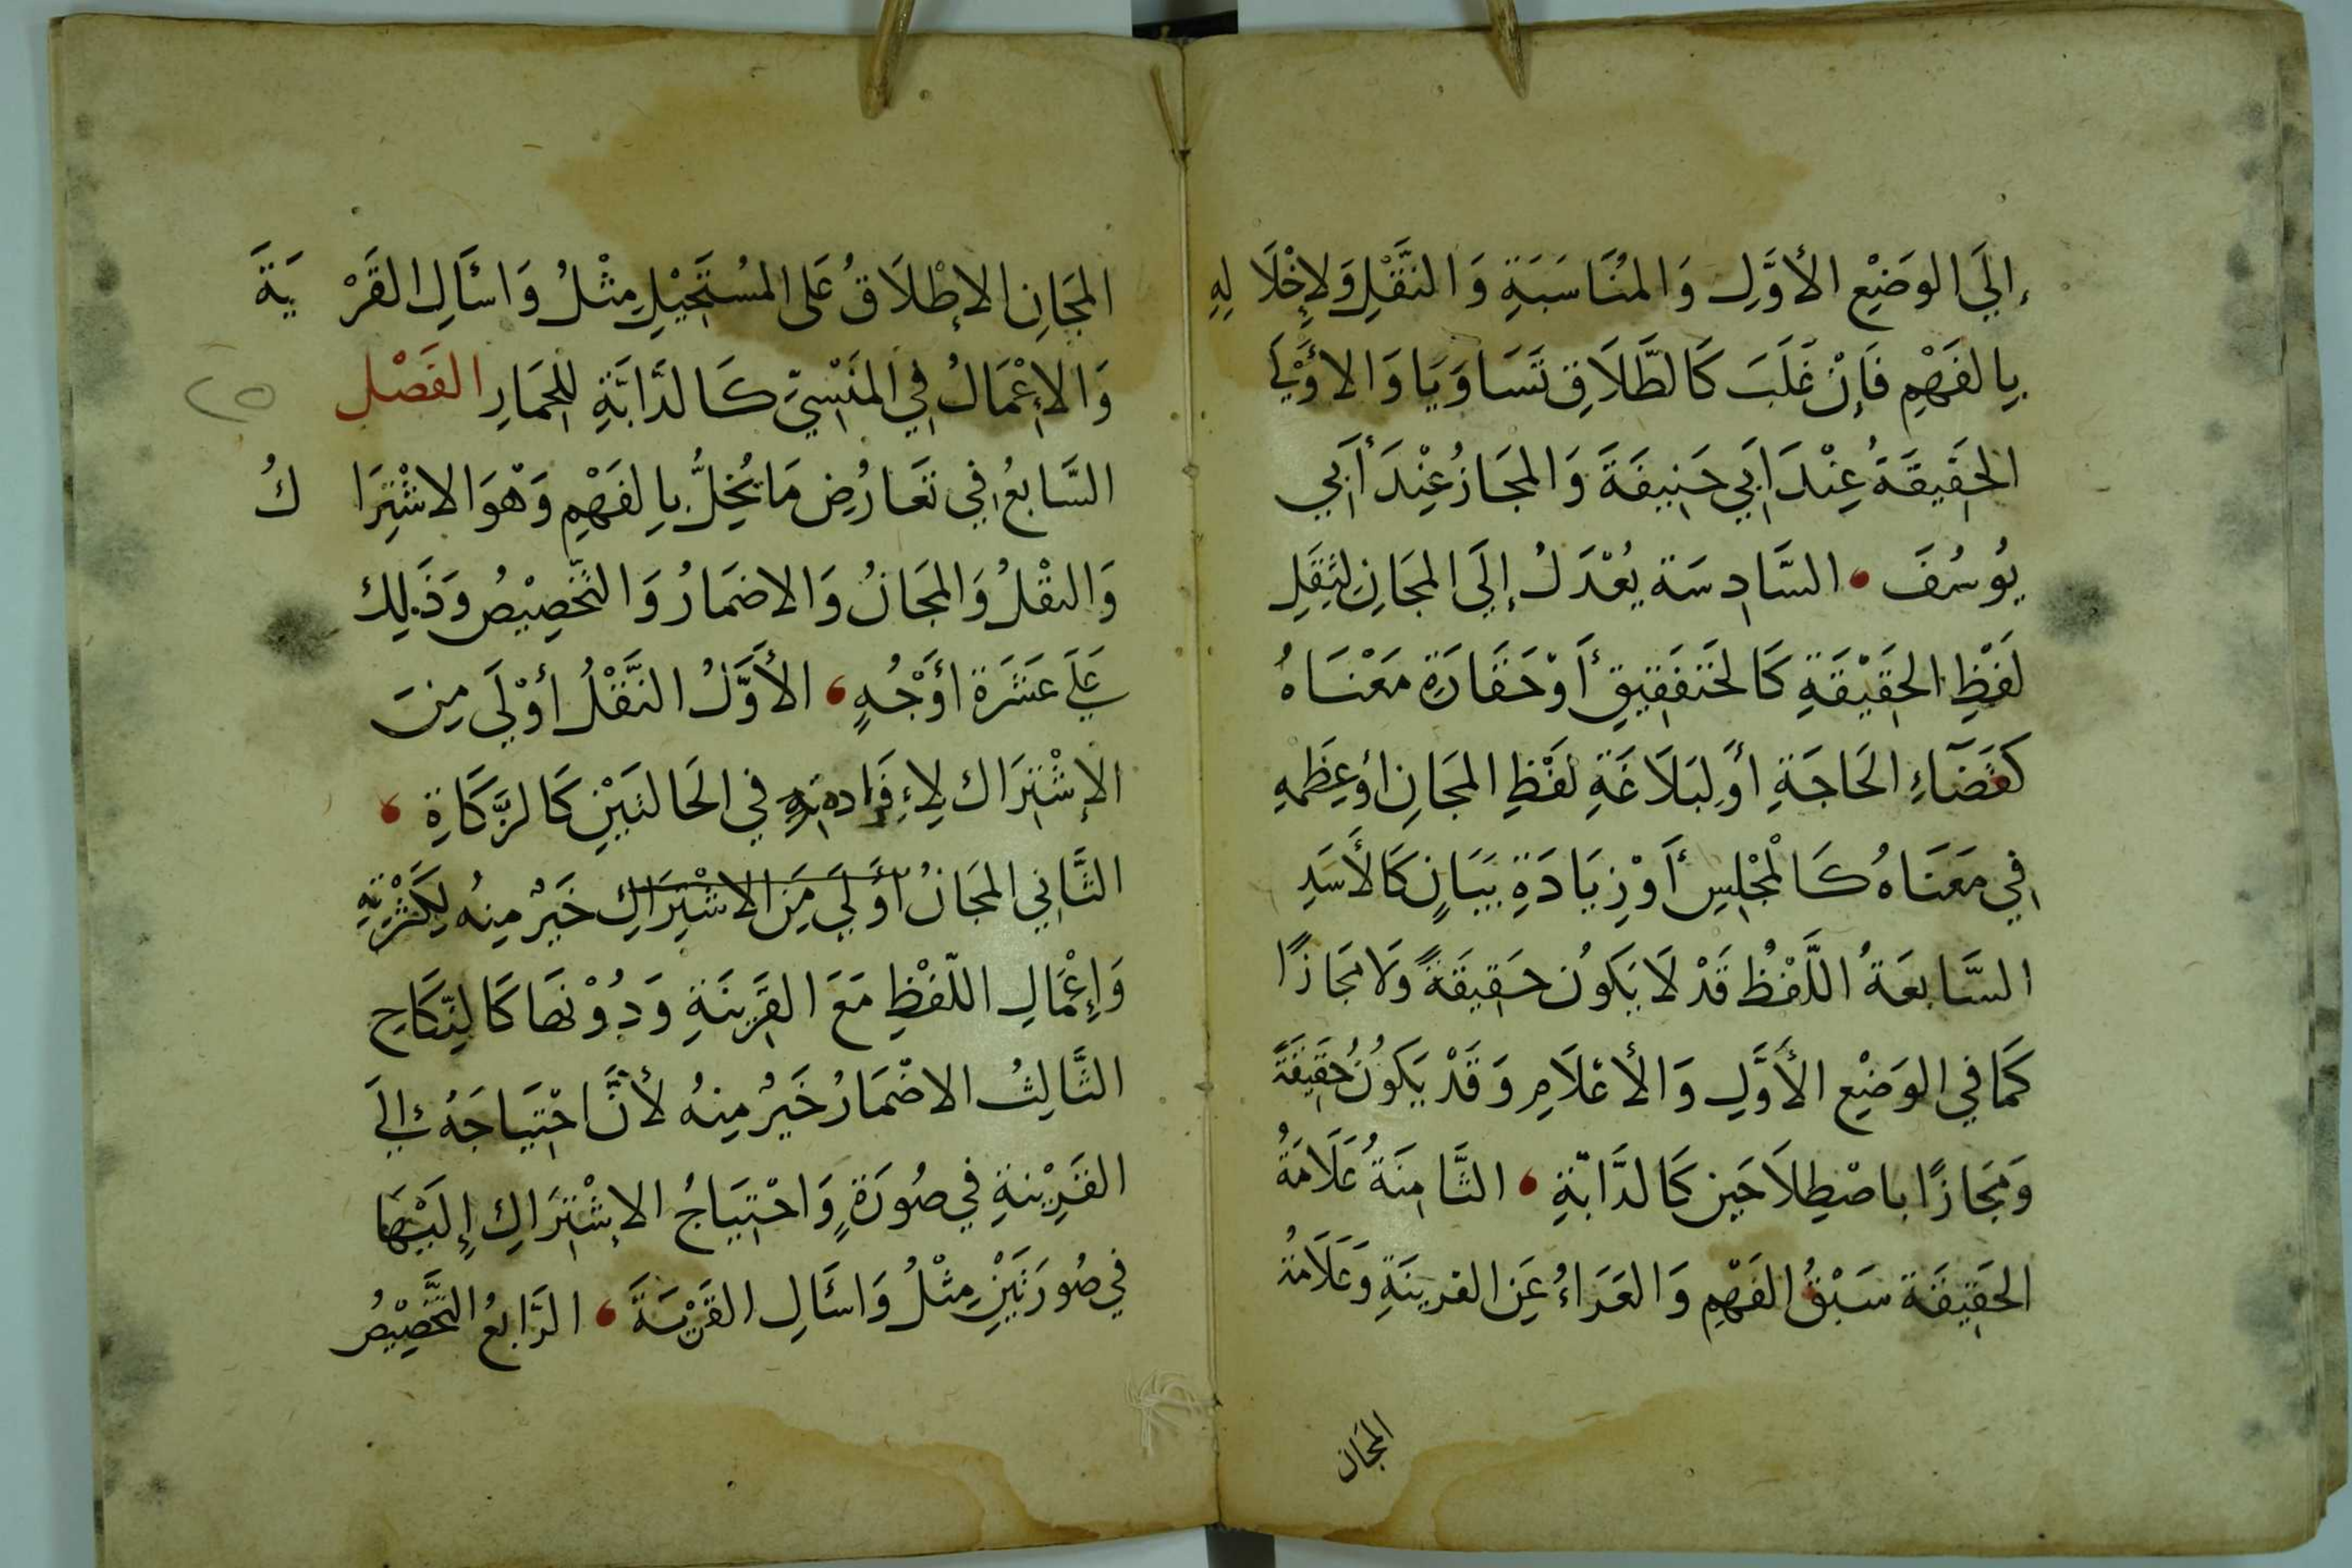 إِلَى الوَضْعِ الأَوَّلِ وَالمُنَاسَبَةِ وَالنَّقْلِ وَلِإِخْلَالِهِ
بِالفَهْمِ فَإِنْ غَلَبَ كَالطَّلَاقِ تَسَاوَيَا وَالأَوْلَى
الحَقِيقَةُ عِنْدَ أَبِي حَنِيفَةَ وَالمَجَازُ عِنْدَ أَبِي
يُوسُفَ السَّادِسَة يُعْدَلُ إِلَى المَجَازِ لِثِقَلِ
لَفْظِ الحَقِيْقَةِ كَالخَنفَقِيقِ أَوْ حَقَارَةِ مَعْنَاهُ
كَقَضَآءِ الحَاجَةِ أَوْ لِبَلَاغَةِ لَفْظِ المَجَازِ أَوْ عِظَمِهِ
فِي مَعْنَاهُ كَالْمَجْلِسِ أَوْ زِيَادَةِ بَيَانٍ كَالأَسَدِ
السَّابِعَةُ اللَّفْظُ قَدْ لَا يَكُونُ حَقِيقَةً وَلَا مَجَازًا
كَمَا فِي الوَضْعِ الأَوَّلِ وَالأَعْلَامِ وَقَدْ يَكُونُ حَقِيقَةً
وَمَجَازًا بِاصْطِلَاحَينِ كَالدَّابَّةِ الثَّامِنَةُ عَلَامَةُ
الحَقِيقَة سَبْقُ الفَهْمِ وَالعَرَاءُ عَنِ القَرِينَةِ وَعَلَامَةُ
المجان
المَجَازِ الإِطْلَاقُ عَلَى المُسْتَحِيْلِ مِثْلُ وَاسْأَلِ القَرْيَةَ
وَالإِعْمَالُ فِي المَنْسِيِّ كَالدَّابَّةِ لِلحِمَارِ الفَصْل
السَّابِعُ فِي تَعَارُضِ مَا يُخِلُّ بِالفَهْمِ وَهْوَ الاشْتِرَاكُ
وَالنقْلُ وَالمَجَازُ وَالاضمَارُ وَالتَّخْصِيْصُ وَذَلِك
عَلَى عَشَرَة أَوْجُهٍ الأَوَّلُ النَّقْلُ أَوْلَى مِنَ
الإشْتِرَاك لِإِفْرَادِهِ فِي الحَالتَيْنِ كَالزَّكَاةِ
الثَّانِي المَجَازُ أَوْلَى مِنَ الاشْتِرَاكِ خَيْرٌ مِنهُ لِكَثْرَتِهِ
وَإِعْمَالِ اللَّفْظِ مَعَ القَرِينَةِ وَدُوْنَهَا كَالنِّكَاحِ
الثَّالِثُ الاضْمَارُ خَيْرٌ مِنهُ لأَنَّ احْتِيَاجَهُ إِلَى
القَرِيْنةِ فِي صُورَةٍ وَاحْتِيَاجُ الاشْتِرَاكِ إِلَيْهَا
فِي صُورَتَيْنِ مِثْلُ وَاسْأَلِ القَرْيَةَ الرَّابِعُ التَّخْصِيْصُ